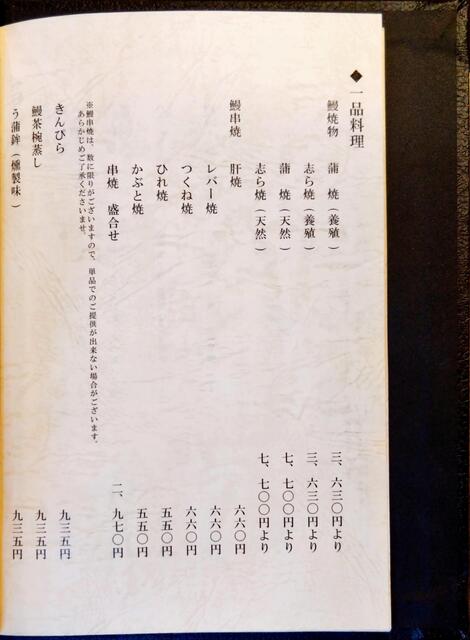 ◆一品料理
鰻焼物 蒲 焼(養殖) 三、六三〇円より
志ら焼(養殖) 三、六三〇円より
蒲 焼(天然) 七、七〇〇円より
志ら焼(天然) 七、七〇〇円より
鰻串焼 肝焼 六六〇円
レバー焼 六六〇円
つくね焼 六六〇円
ひれ焼 五五〇円
かぶと焼 五五〇円
串焼 盛合せ 二、九七〇円
※鰻串焼は、数に限りがございますので、単品でのご提供が出来ない場合がございます。
あらかじめご了承くださいませ。
きんぴら 九三五円
鰻茶椀蒸し 九三五円
う蒲鉾(燻製味) 九三五円